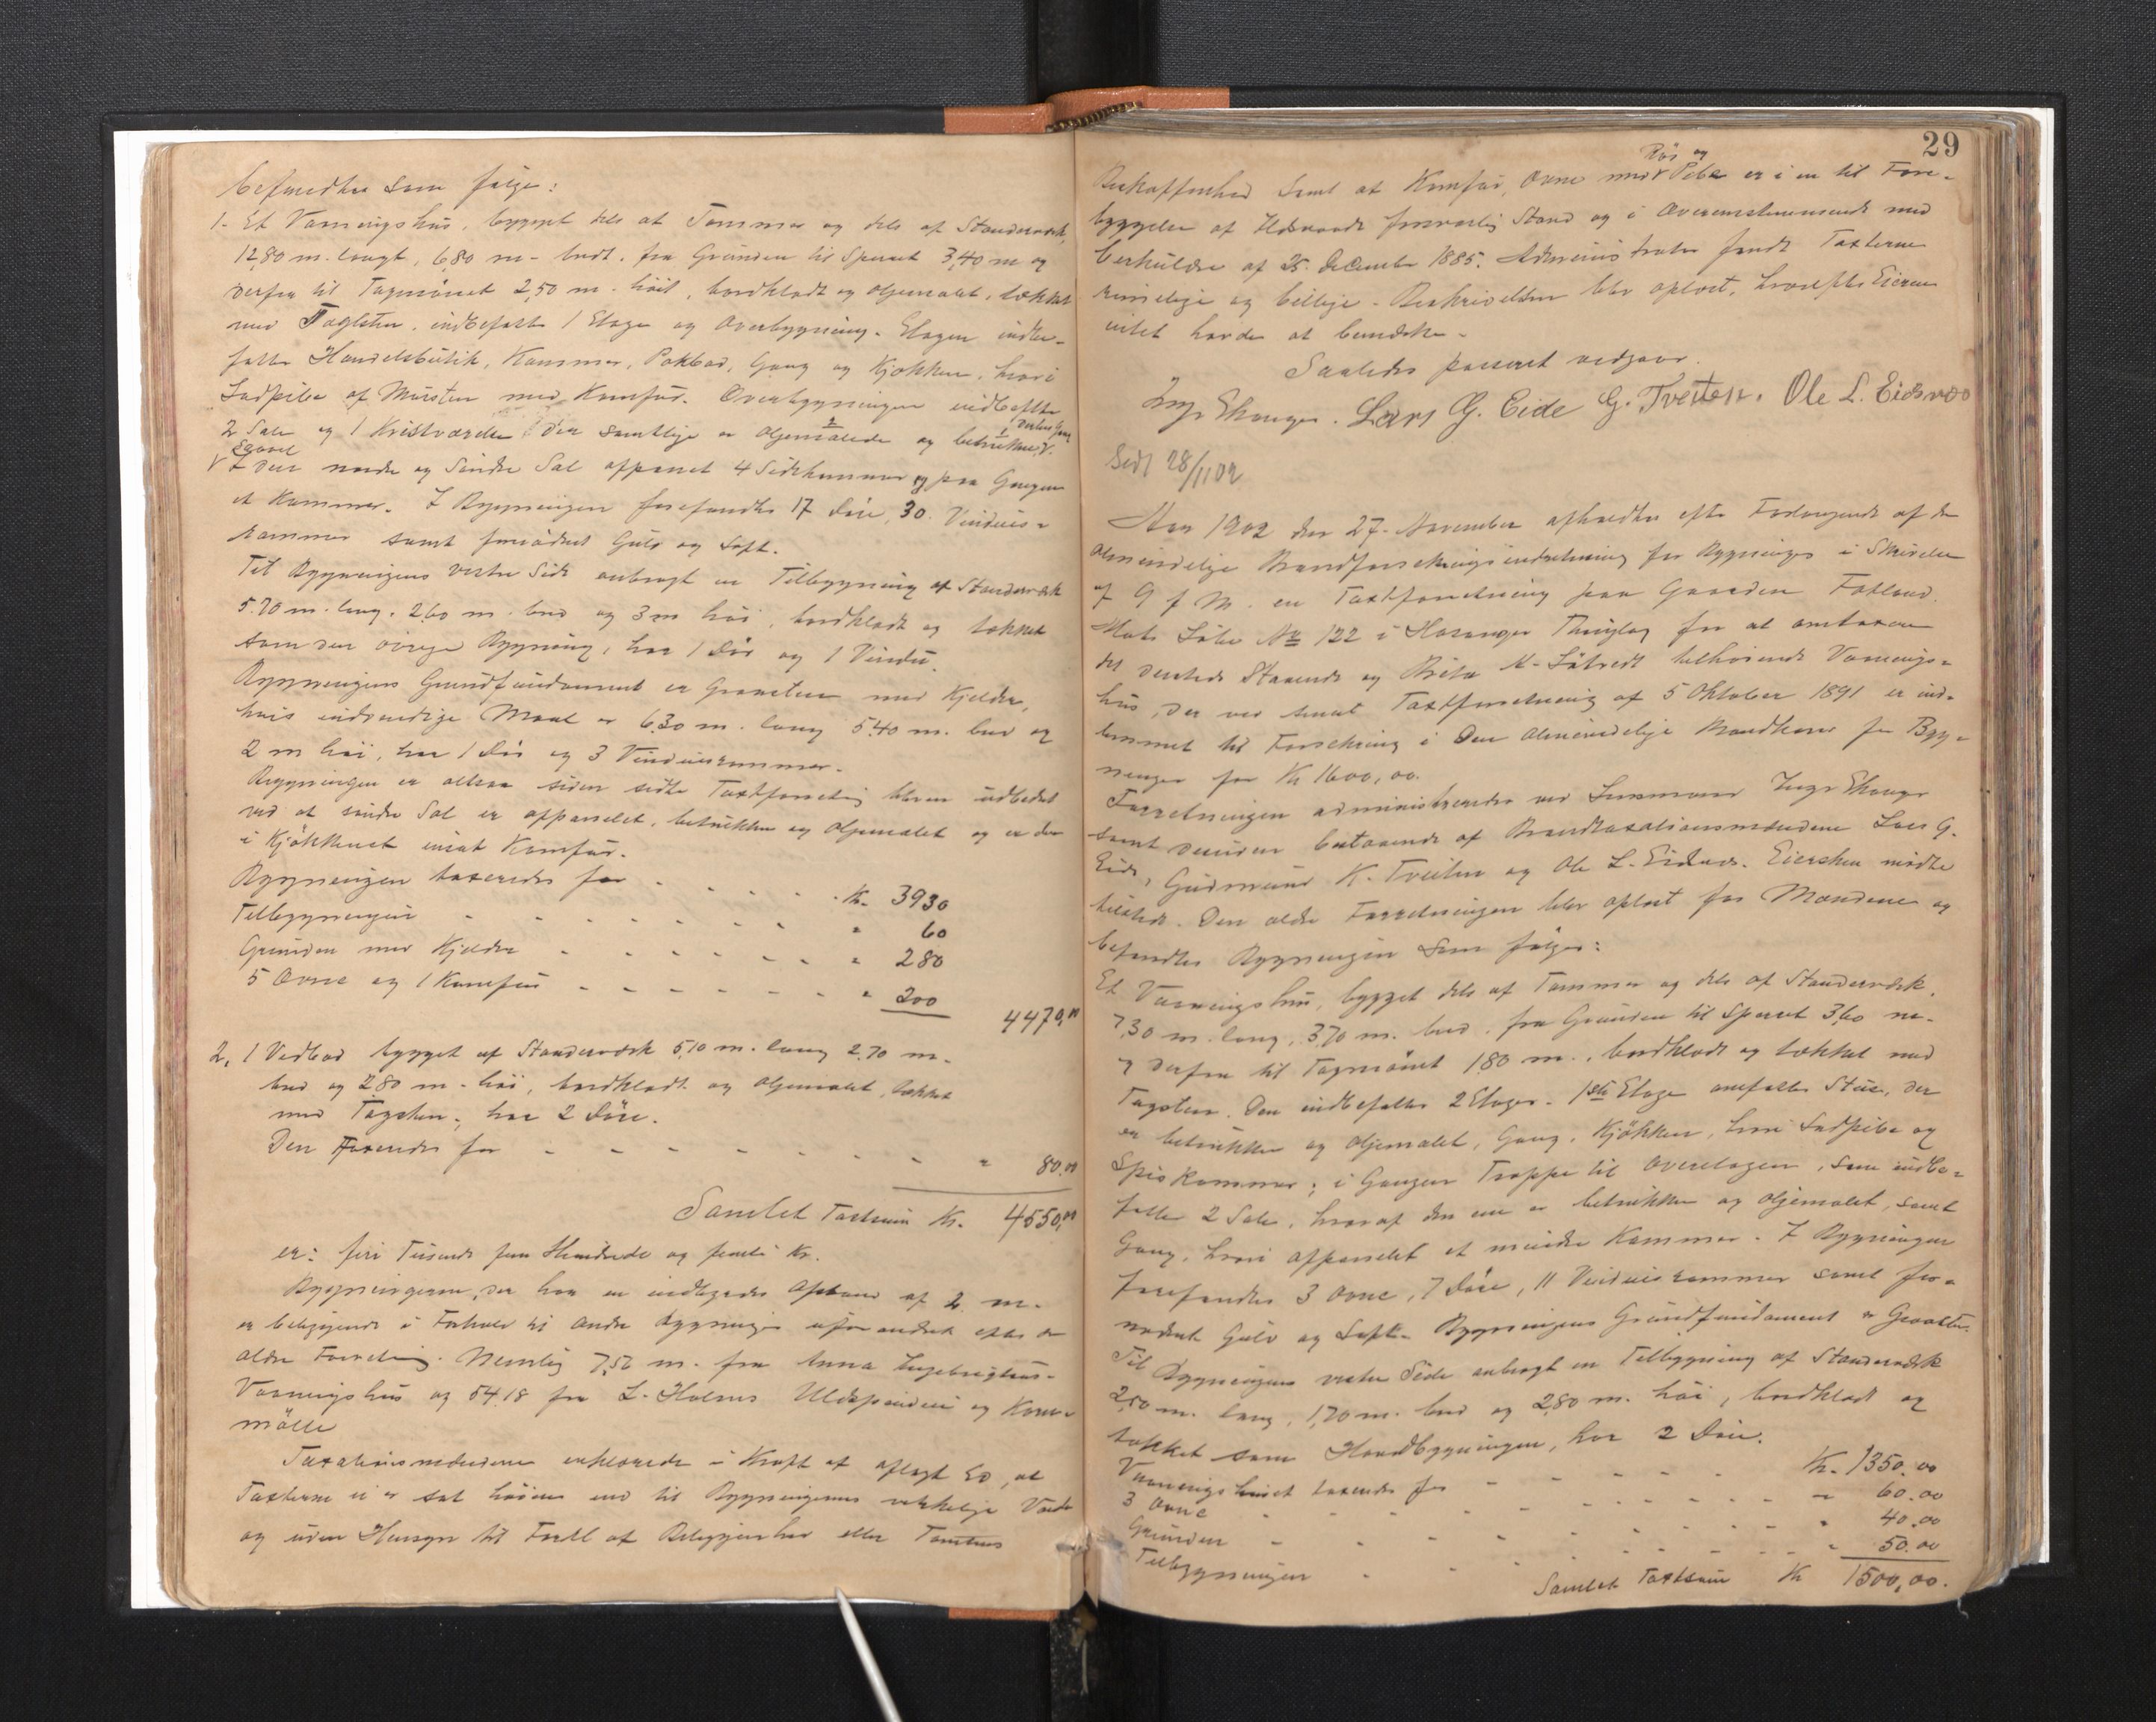 befandtes som følge:
1. Et Vaaningshus, bygget dels af Tømmer og dels af Standerværk,
12,80 m. langt, 6,80 m. bredt, fra Grunden til Sperret 3,40 m og
derfra til Tagmønet 2,50 m. høit, bordklædt og oljemalet, tækket
med Taglsten, indbefatter 1 Etage og Overbygning. Etagen indbe-
fatter Handelsbutik, Kammer, Pakbod, Gang og Kjøkken, hvori
Ladpibe af Mursten med Komfur. Overbygningen indbefatter
2 Sale og 1 Kvistværelse, der samtlige er oljemalede og betrukne,
I den nordre og søndre Sal afpanel 4 Sidekammer og paa Gangen
et Kammer. I Bygningen forefandtes 17 Døre, 30 Vindues-
rammer samt fornødent Gulv og Loft.
Til Bygningens vestre Side anbragt en Tilbygning af Standerværk
5.70 m. lang, 2,60 m. bred og 3 m høi, bordklædt og tækket
som den øvrige Bygning, har 1 Dør og 1 Vindu.
Bygningens Grundfundament er Graasten med Kjelder,
hvis indvendige Maal er 6,30 m. lang 5,40 m. bred og
2 m høi, har 1 Dør og 3 Vinduesrammer.
Bygningen er altsaa siden sidste Taxtforretnig bleven udbedret
ved at søndre Sal er afpanelet, betrukken og oljemalet og er der
i Kjøkkenet insat Komfur.
Bygningen taxeredes for - - - - Kr. 3930
Tilbygningen - - - - - - " 60
Grunden med Kjelder - - - - - - " 280
5 Ovne og 1 Komfur - - - - - - " 200
4470,00
2. 1 Vedbod bygget af Standerværk 5,10 m. lang 2,70 m.
bred og 2,80 m. høi, bordklædt og oljemalet, tækket
med Tagsten, har 2 Døre.
Den taxeredes for - - - - - - - " 80.00
Samlet Taxtsum Kr. 4550,00
er: fire Tusende fem Hundrede og femti Kr.
Bygningerne, der har en indbyrdes Afstand af 2 m.
er beliggende i Forhold til andre Bygninger uforandret efter den
ældre Forretnig. Nemlig 7,50 m. fra Anna Ingebrigtsens
Vaaningshus og 54.18 fra L. Holmes Uldspinderi og Korn-
mølle
Taxationsmændene erklærede i Kraft af aflagt Ed, at
Taxterne ei er sat høiere end til Bygningernes virkelige Værdi
og uden Hensyn til Fordel af Beliggenhed eller Tomtens
29
Rør og
Beskaffenhed samt at Komfur, Ovne med Pibe er i en til Fore-
byggelse af Ildsvaade forsvarlig Stand og i Overensstemmende med
Cirkulære af 25. December 1885. Administrator fandt Taxterne
rimelige og billige. Beskrivelsen blev oplæst, hvorefter Eieren
intet havde at bemærke.
Saaledes passeret vedgaar.
Inge Skauge. Lars G. Eide G. Tveiten. Ole L. Eidsnæs
Sedl 28/11 02
Aar 1902 den 27. November afholdtes efter Forlangende af den
almindelige Brandforsikringsindretning for Bygninger i Skrivelse
af 9 f M. en Taxtforretning paa Gaarden Fotland
Matr Løbe No 122 i Hosanger Thinglag for at omtaxere
det dersteds staaende og Brita M. Løtvedt tilhørende Vaanings-
hus, der ved senest Taxtforretning af 5 Oktober 1891 er ind-
lemmet til Forsikring i Den almindelige Brandkasse for Byg-
ninger for Kr 1600,00.
Forretningen administreredes ved Lensmand Inge Skauge
samt desuden bestaaende af Brandtaxationsmændene Lars G.
Eide, Gudmund K. Tveiten og Ole L. Eidsnæs. Eiersken mødte
tilstede. Den ældre Forretningen blev oplæst for Mændene og
befandtes Bygningen som følger:
Et Vaaningshus, bygget dels af Tømmer og dels af Standerværk.
7,30 m. lang, 3,70 m. bred, fra Grunden til Sperret 3,60 m.
og derfra til Tagmønet 1,80 m., bordklædt og tækket med
Tagsten. Den indbefatter 2 Etager. 1ste Etage omfatter Stue, der
er betrukken og oljemalet, Gang, Kjøkken, hvori Ladpibe og
Spiskammer; i Gangen Trappe til Overetagen, som indbe-
fatter 2 Sale, hvoraf den ene er betrukken og oljemalet, samt
Gang, hvori afpanelet et mindre Kammer. I Bygningen
forefandtes 3 Ovne, 7 Døre, 11 Vinduesrammer samt for-
nødent Gulv og Loft. Bygningens Grundfundament er Graasten.
Til Bygningens vestre Side anbragt en Tilbygning af Standerværk
2,50 m. lang, 1,70 m. bred og 2,80 m. høi, bordklædt og
tækket som Hovedbygningen, har 2 Døre.
Vaaningshuset taxeredes for - - - - Kr. 1350.00
3 Ovne - - - - - - - - " 60.00
Grunden - - - - - - - " 40.00
Tilbygningen - - - - - - " 50.00
Samlet Taxtsum Kr 1500,00.